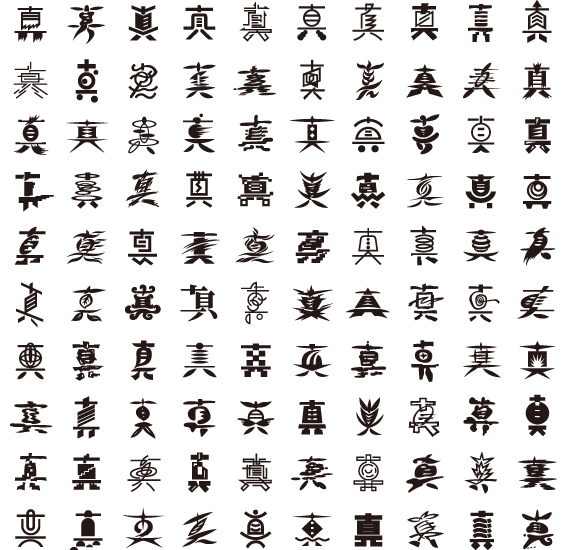 真真真真真真真真真真
真真真真真真真真真真
真真真真真真真真真真
真真真真真真真真真真
真真真真真真真真真真
真真真真真真真真真真
真真真真真真真真真真
真真真真真真真真真真
真真真真真真真真真真
真真真真真真真真真真